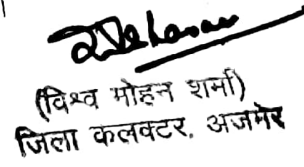 (विश्व मोहन शर्मा)
जिला कलक्टर, अजमेर